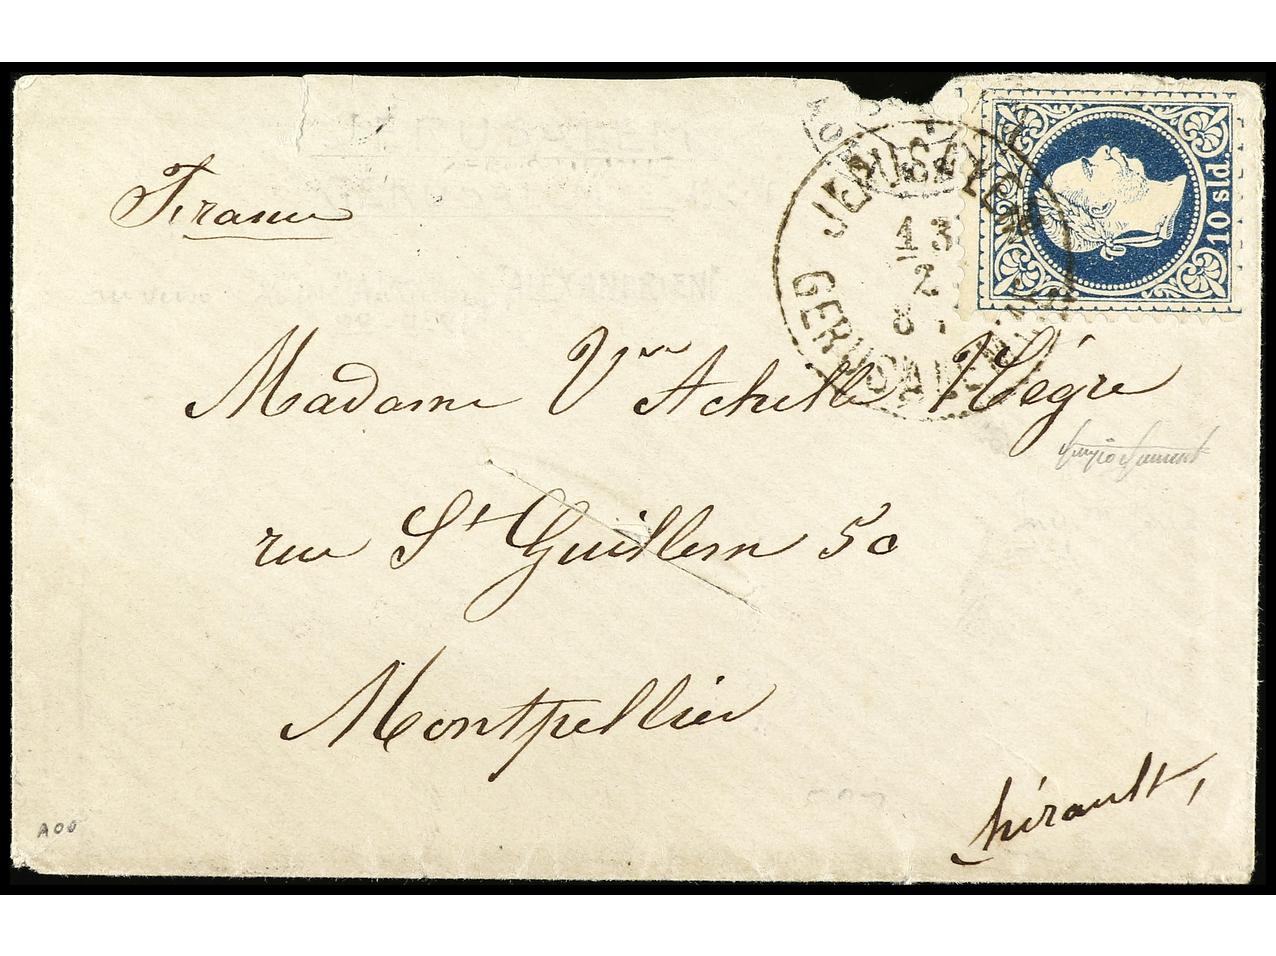 France
JERUSALEM
13
2
GERUSALEMME
10 sld.
Madame Vve Achille Nègre
rue St Guillem 50
Montpellier
hérault,
A00